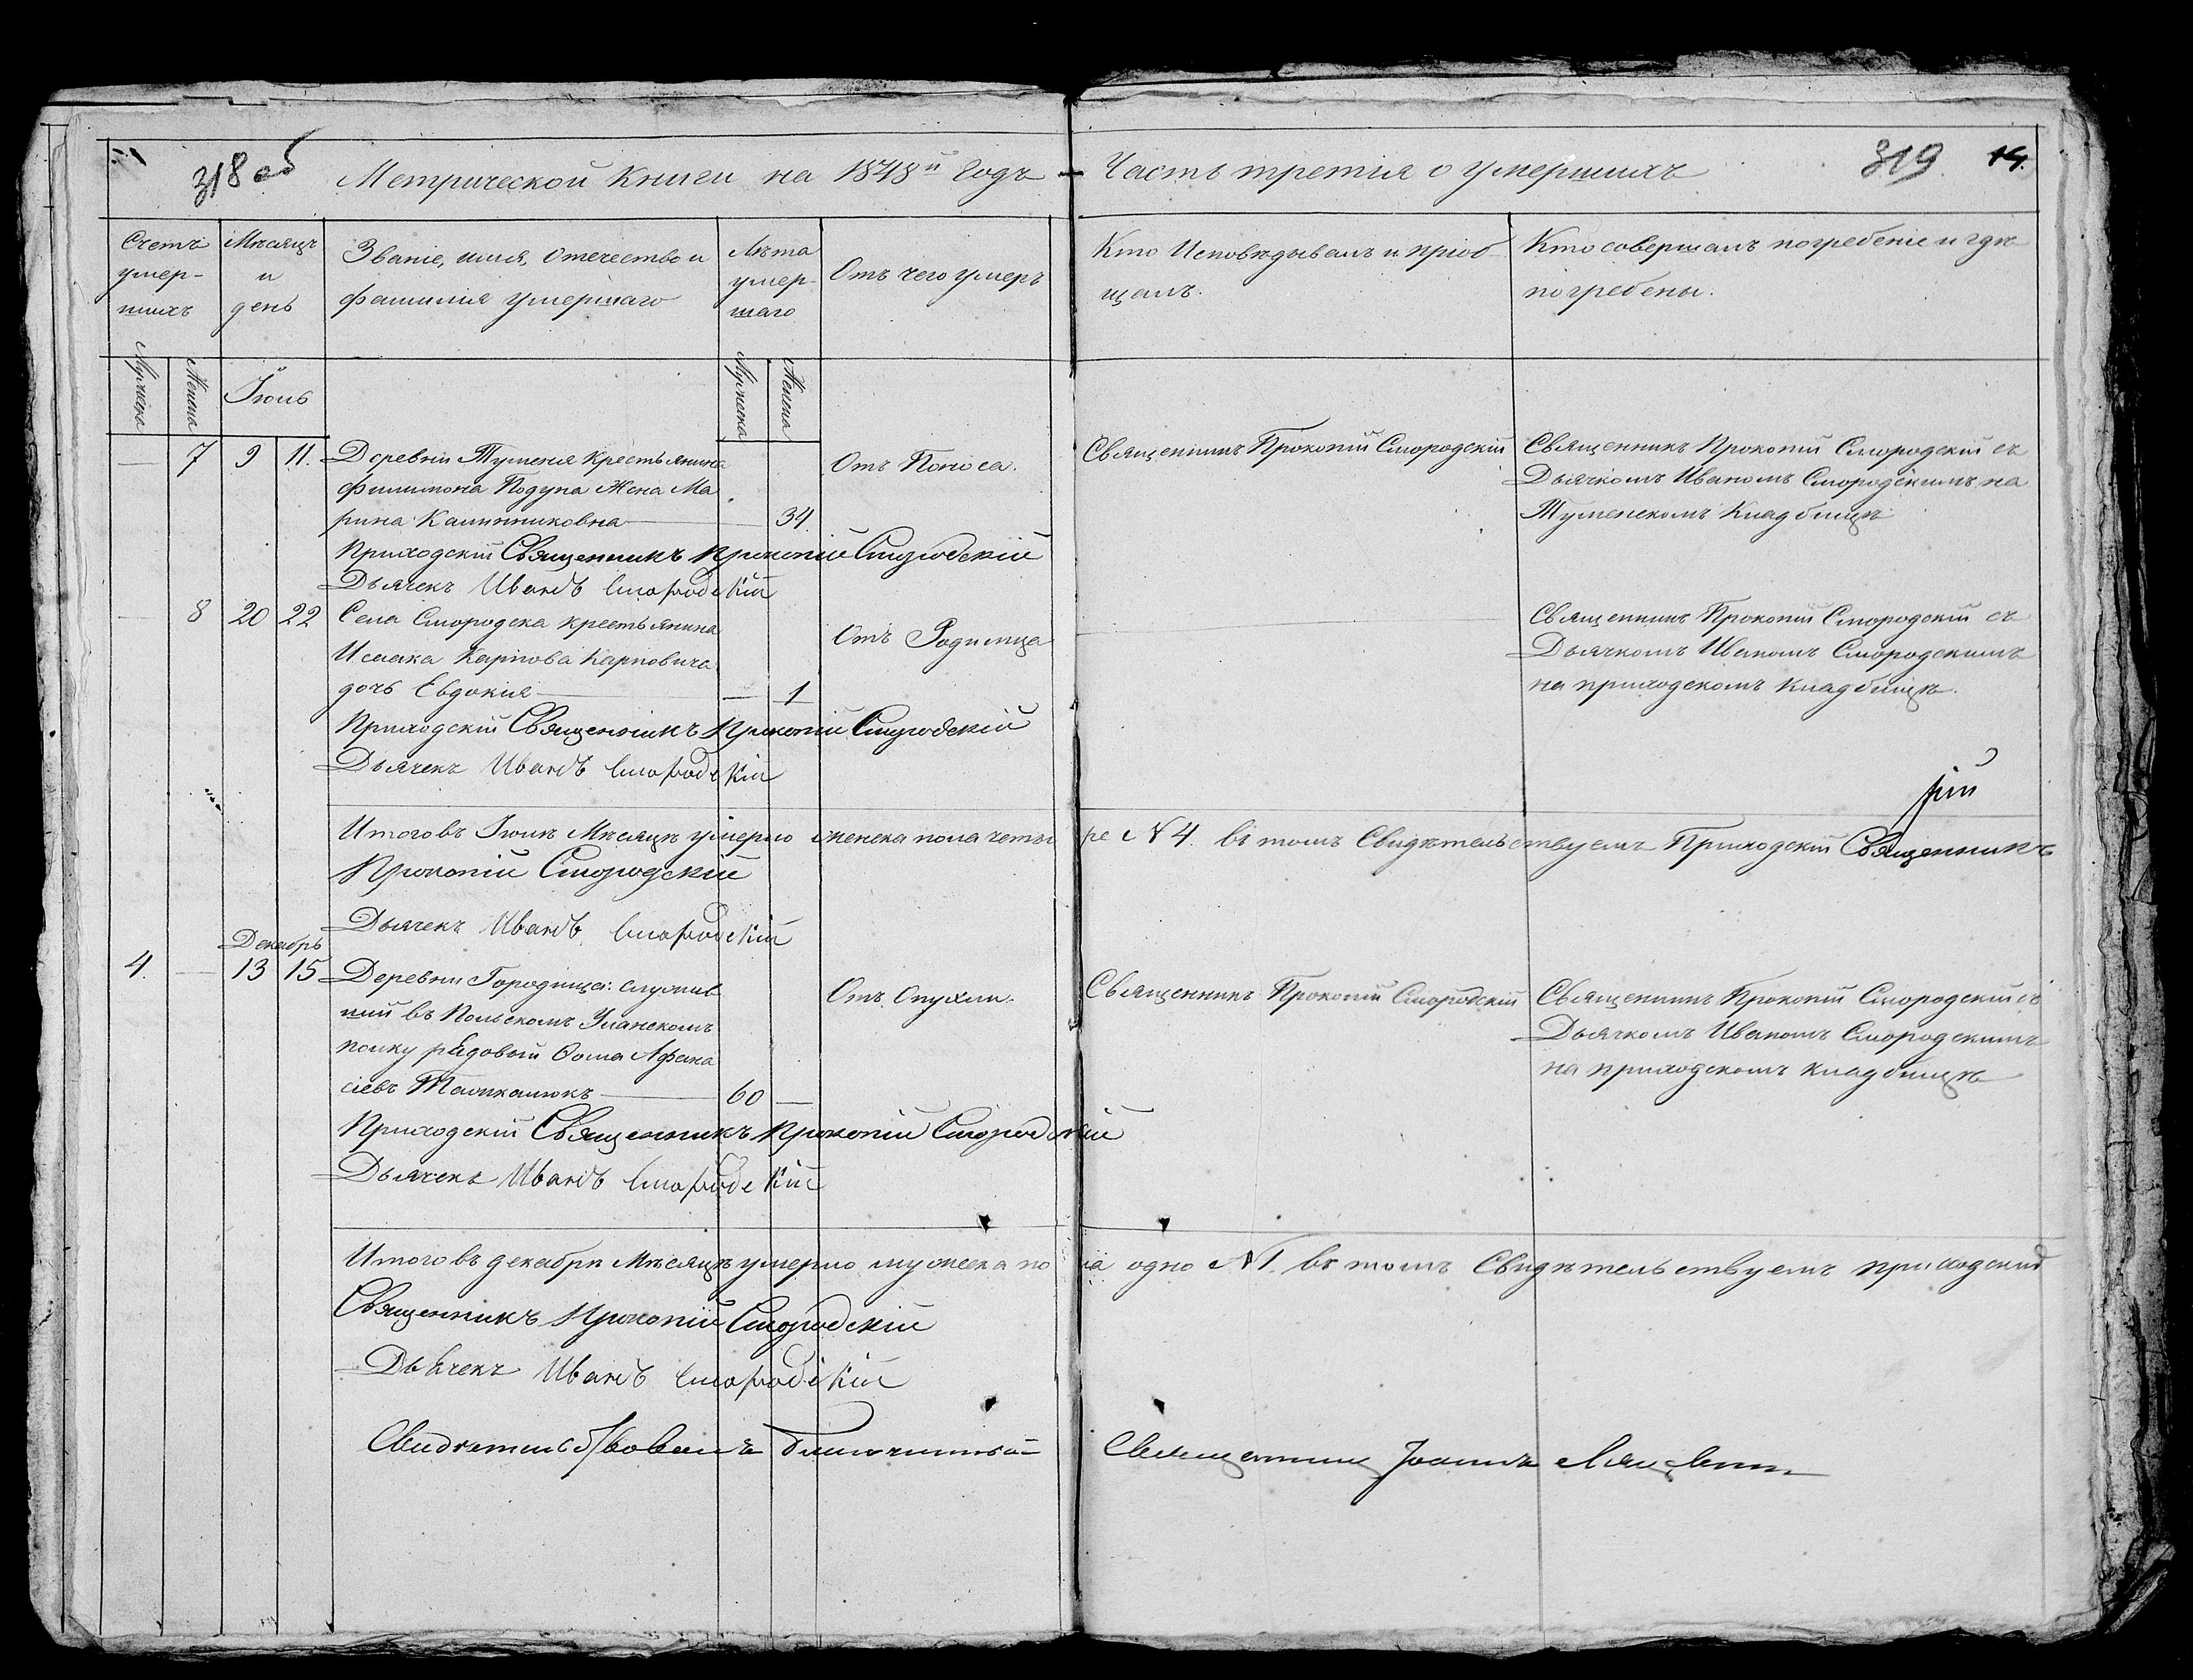 318 об
Метрической Книги на 1848й Годъ
Часть третія о умершихъ
319. 14.
Счетъ умер-
шихъ
Мѣсяцъ
и
день
Званіе, имя, отечество и
фамилія умершаго
Лѣта
умер-
шаго
Отъ чего умеръ
Кто Исповѣдывалъ и пріоб-
щалъ.
Кто совершалъ погребеніе и гдѣ
погребены.
Мужеска
Женска
Іюнь
Мужеска
Женска
7 9 11. Деревни Туменя Крестьянина
Филимона Подупа Жена Ма
рина Калинниковна 34.
Отъ Поноса.
Священникъ Прокопій Смородскій
Священникъ Прокопій Смородскій съ
Дьячкомъ Иваномъ Смородскимъ на
Туменскомъ Кладбищѣ
Приходскій Священникъ Прокопій Смородскій
Дьячекъ Иванъ Смородскій
8 20 22 Села Смородска крестьянина
Исаака Карпова Карповича
дочь Евдокія 1
Отъ Родимца
Священникъ Прокопій Смородскій съ
Дьячкомъ Иваномъ Смородскимъ
на приходскомъ кладбищѣ.
Приходскій Священникъ Прокопій Смородскій
Дьячекъ Иванъ Смородскій
Итого въ Іюнѣ Мѣсяцѣ умерло женска пола четы ре №4. въ томъ Свидѣтельствуемъ Приходскій Священникъ
Прокопій Смородскій
Дьячекъ Иванъ Смородскій
Декабрь
4. 13 15 Деревни Городища: служив
шій въ Польскомъ Уланскомъ
полку рядовый Ѳома Афана
сіевъ 60
Отъ Опухли.
Священникъ Прокопій Смородскій
Священникъ Прокопій Смородскій съ
Дьячкомъ Иваномъ Смородскимъ
на приходскомъ кладбищѣ
Приходскій Священникъ Прокопій Смородскій
Дьячекъ Иванъ Смородскій
Итого въ декабрѣ Мѣсяцѣ умерло мужеска по ла одно №1. въ томъ Свидѣтельствуемъ приходскій
Священникъ Прокопій Смородскій
Дьячекъ Иванъ Смородскій
Свидѣтельствовалъ благочинный Священникъ Іоаннъ